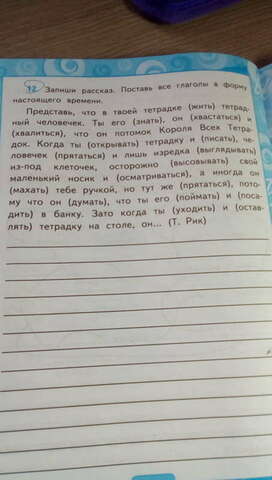 12 Запиши рассказ. Поставь все глаголы в форму
настоящего времени.
Представь, что в твоей тетрадке (жить) тетрад-
ный человечек. Ты его (знать), он (хвастаться) и
(хвалиться), что он потомок Короля Всех Тетра-
док. Когда ты (открывать) тетрадку и (писать), че-
ловечек (прятаться) и лишь изредка (выглядывать)
из-под клеточек, осторожно (высовывать) свой
маленький носик и (осматриваться), а иногда он
(махать) тебе ручкой, но тут же (прятаться), пото-
му что он (думать), что ты его (поймать) и (поса-
дить) в банку. Зато когда ты (уходить) и (остав-
лять) тетрадку на столе, он... (Т. Рик)